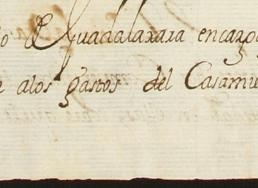 o Guadalaxara encarg
alos gastos del Casam